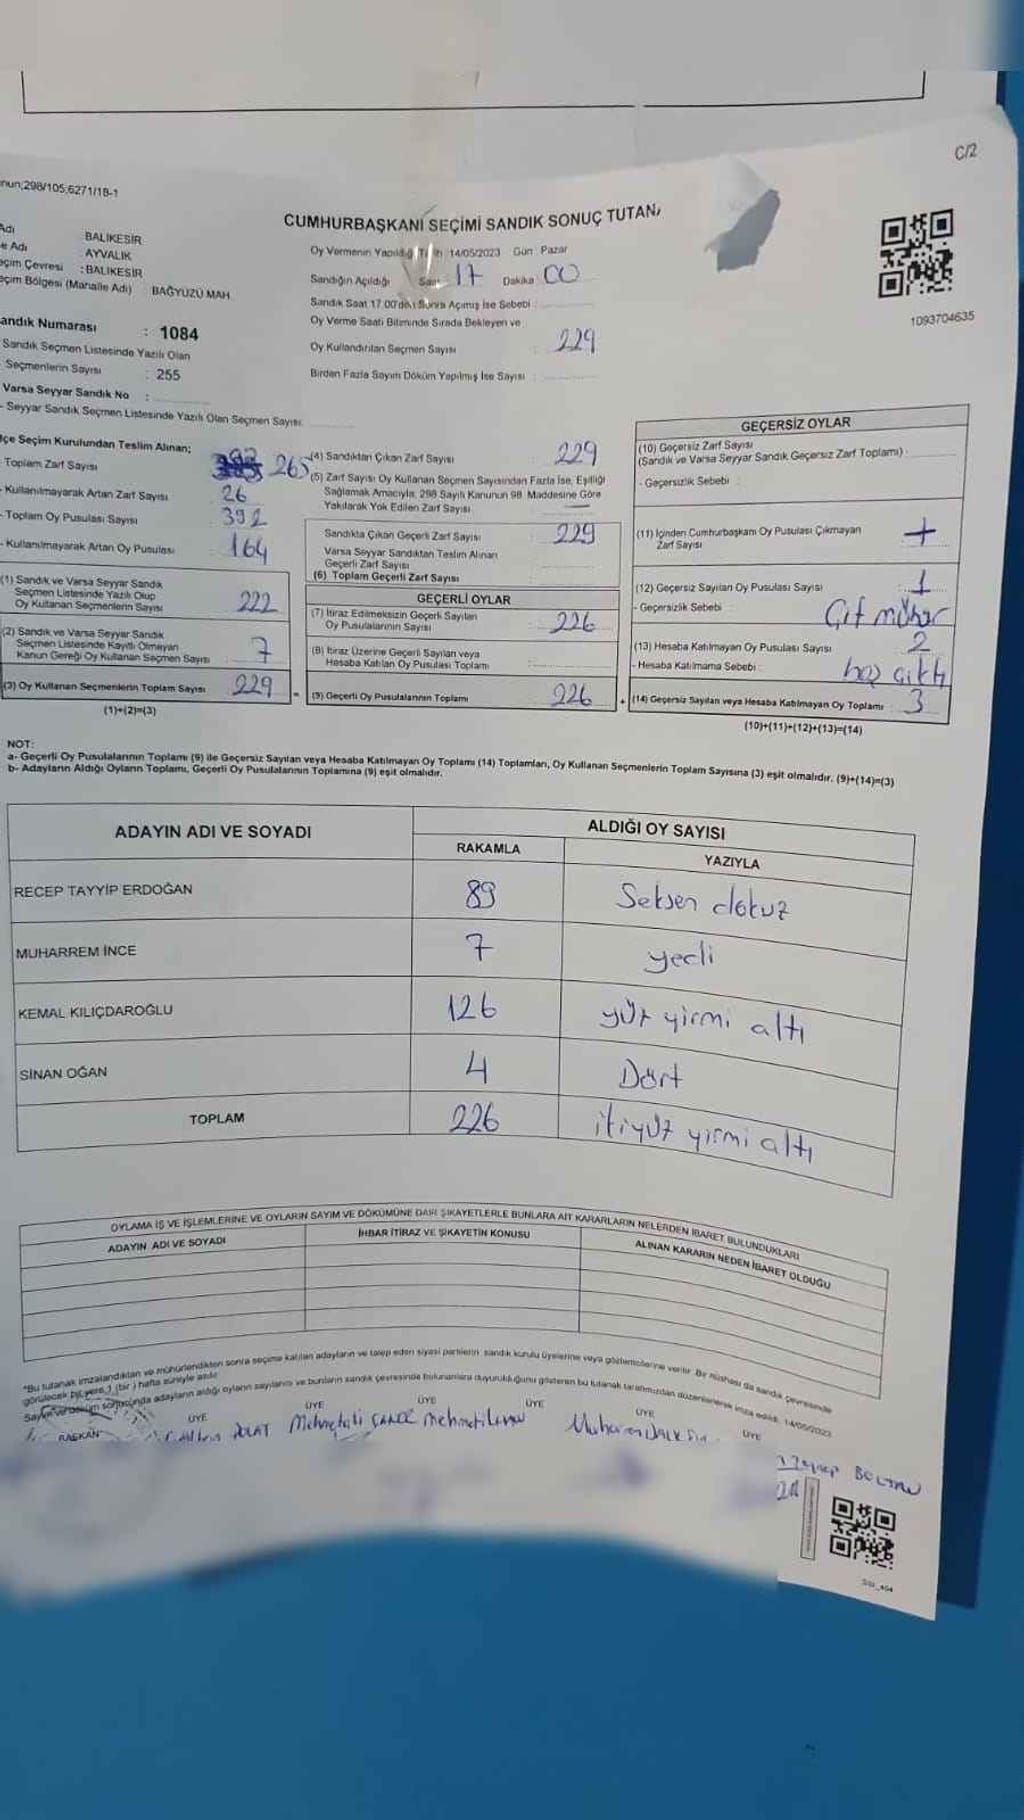 C/2
nun;298/105;6271/18-1
CUMHURBAŞKANI SEÇİMİ SANDIK SONUÇ TUTAN
Adı BALIKESİR
e Adı AYVALIK
eçim Çevresi : BALIKESİR
eçim Bölgesi (Mahalle Adı) BAĞYÜZÜ MAH
andık Numarası : 1084
Sandık Seçmen Listesinde Yazılı Olan
Seçmenlerin Sayısı : 255
Varsa Seyyar Sandık No :
- Seyyar Sandık Seçmen Listesinde Yazılı Olan Seçmen Sayısı:
Oy Vermenin Yapıldığı Tarih 14/05/2023 Gün : Pazar
Sandığın Açıldığı Saat 17 Dakika 00
Sandık Saat 17.00'den Sonra Açımış İse Sebebi :
Oy Verme Saati Bitiminde Sırada Bekleyen ve
Oy Kullandırılan Seçmen Sayısı : 229
Birden Fazla Sayım Döküm Yapılmış İse Sayısı :
1093704635
lçe Seçim Kurulundan Teslim Alınan;
- Toplam Zarf Sayısı 265
- Kullanılmayarak Artan Zarf Sayısı 26
- Toplam Oy Pusulası Sayısı 392
- Kullanılmayarak Artan Oy Pusulası 164
(1) Sandık ve Varsa Seyyar Sandık
Seçmen Listesinde Yazılı Olup
Oy Kullanan Seçmenlerin Sayısı 222
(2) Sandık ve Varsa Seyyar Sandık
Seçmen Listesinde Kayıtlı Olmayan
Kanun Gereği Oy Kullanan Seçmen Sayısı 7
(3) Oy Kullanan Seçmenlerin Toplam Sayısı 229
(1)+(2)=(3)
(4) Sandıktan Çıkan Zarf Sayısı : 229
(5) Zarf Sayısı Oy Kullanan Seçmen Sayısından Fazla İse, Eşitliği
Sağlamak Amacıyla, 298 Sayılı Kanunun 98. Maddesine Göre
Yakılarak Yok Edilen Zarf Sayısı
Sandıkta Çıkan Geçerli Zarf Sayısı : 229
Varsa Seyyar Sandıktan Teslim Alınan
Geçerli Zarf Sayısı
(6) Toplam Geçerli Zarf Sayısı
GEÇERLİ OYLAR
(7) İtiraz Edilmeksizin Geçerli Sayılan
Oy Pusulalarının Sayısı 226
(8) İtiraz Üzerine Geçerli Sayılan veya
Hesaba Katılan Oy Pusulası Toplamı :
(9) Geçerli Oy Pusulalarının Toplamı 226
GEÇERSİZ OYLAR
(10) Geçersiz Zarf Sayısı
(Sandık ve Varsa Seyyar Sandık Geçersiz Zarf Toplamı) :
- Geçersizlik Sebebi :
(11) İçinden Cumhurbaşkanı Oy Pusulası Çıkmayan
Zarf Sayısı +
(12) Geçersiz Sayılan Oy Pusulası Sayısı : 1
- Geçersizlik Sebebi : Çift mühür
(13) Hesaba Katılmayan Oy Pusulası Sayısı 2
- Hesaba Katılmama Sebebi : boş çıktı
(14) Geçersiz Sayılan veya Hesaba Katılmayan Oy Toplamı : 3
(10)+(11)+(12)+(13)=(14)
NOT:
a- Geçerli Oy Pusulalarının Toplamı (9) ile Geçersiz Sayılan veya Hesaba Katılmayan Oy Toplamı (14) Toplamları, Oy Kullanan Seçmenlerin Toplam Sayısına (3) eşit olmalıdır. (9)+(14)=(3)
b- Adayların Aldığı Oyların Toplamı, Geçerli Oy Pusulalarının Toplamına (9) eşit olmalıdır.
ADAYIN ADI VE SOYADI ALDIĞI OY SAYISI
RAKAMLA YAZIYLA
RECEP TAYYİP ERDOĞAN 89 Seksen dokuz
MUHARREM İNCE 7 yedi
KEMAL KILIÇDAROĞLU 126 yüz yirmi altı
SİNAN OĞAN 4 Dört
TOPLAM 226 ikiyüz yirmi altı
OYLAMA İŞ VE İŞLEMLERİNE VE OYLARIN SAYIM VE DÖKÜMÜNE DAİR ŞİKAYETLERLE BUNLARA AİT KARARLARIN NELERDEN İBARET BULUNDUKLARI
ADAYIN ADI VE SOYADI İHBAR İTİRAZ VE ŞİKAYETİN KONUSU ALINAN KARARIN NEDEN İBARET OLDUĞU
*Bu tutanak imzalandıktan ve mühürlendikten sonra seçime katılan adayların ve talep eden siyasi partilerin sandık kurulu üyelerine veya gözlemcilerine verilir. Bir nüshası da sandık çevresinde
görülecek bir yere 1 (bir) hafta süreyle asılır
Sayım ve döküm sonucunda adayların aldığı oyların sayılarını ve bunların sandık çevresinde bulunanlara duyurulduğunu gösteren bu tutanak tarafımızdan düzenlenerek imza edildi. 14/05/2023
BAŞKAN ÜYE ÜYE ÜYE ÜYE ÜYE ÜYE
POLAT Mehmetali